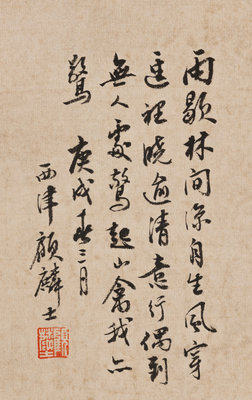 雨歇林間涼自生風穿
逕裡曉逾清意行偶到
無人處驚起山禽我亦
驚 庚戌春三月
西津顧麟士